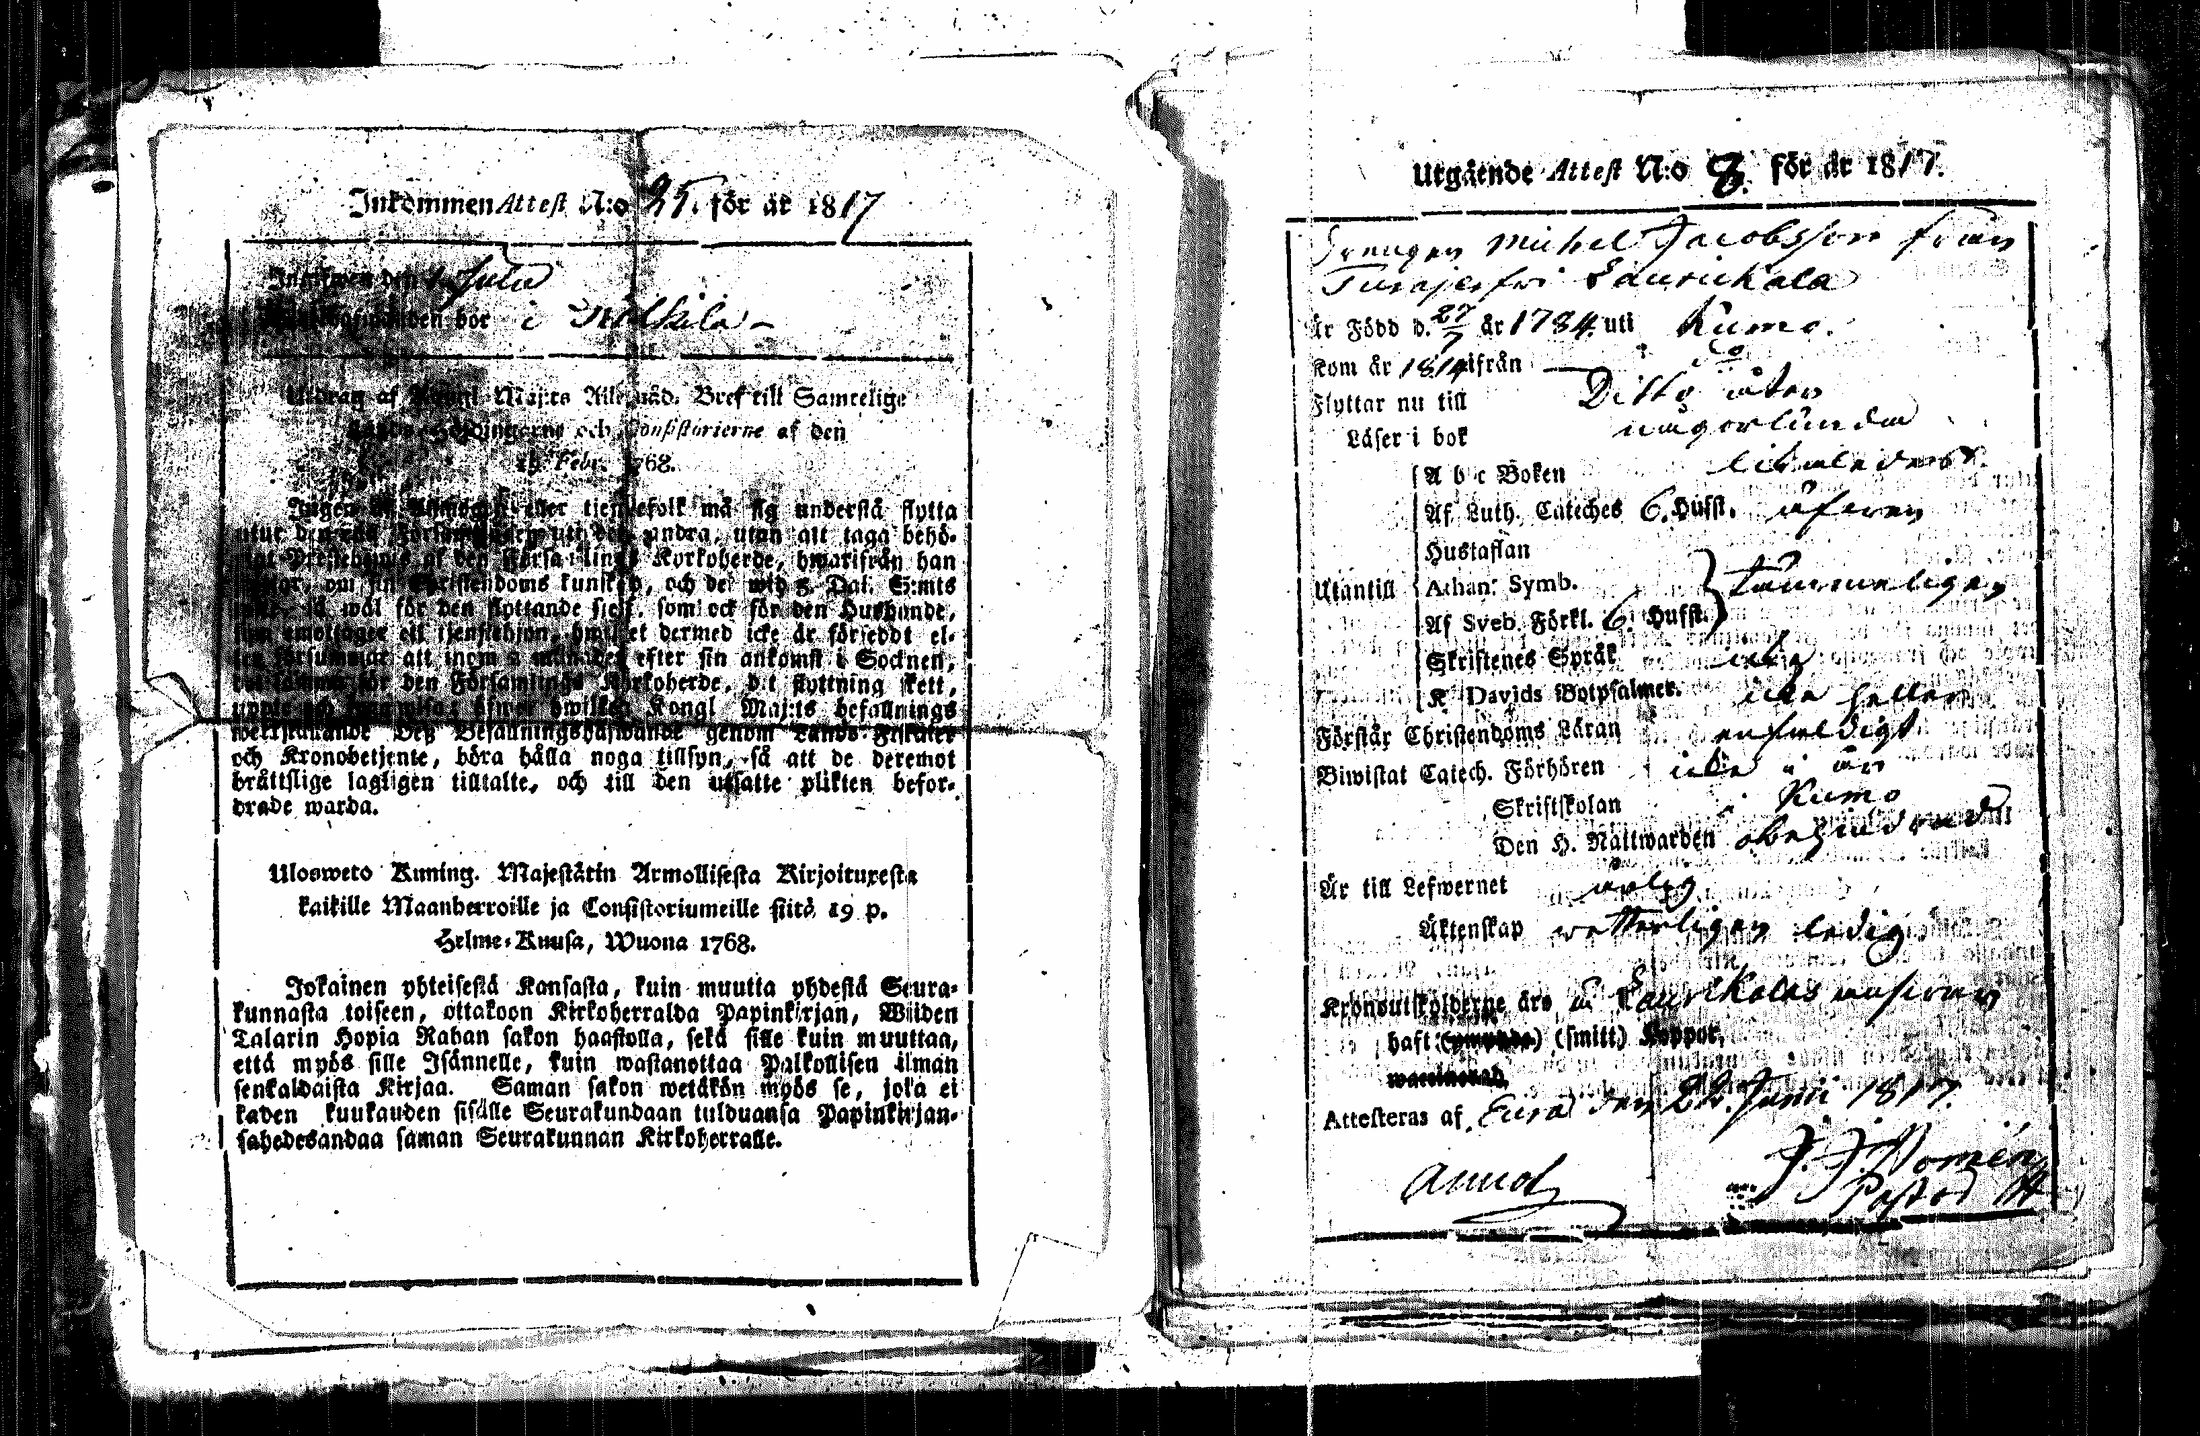 Inkommen Attest N:o 25. för år 1817
den 1 Julii
bor i
Utdrag af Kongl. Maj:ts Alle nåd. Bref till Samtelige
och Consistorierne af den
19 Febr. 1768.
Ingen af Allmogen eller tjenstefolk må sig understå flytta
utur den ena Församlingen uti den andra, utan att taga behö-
af den Församlings Kyrkoherde, hwarifrån han
om sin Christendoms kunskap, och det wid 5 Dal. S:mts
så wäl för den flyttande sjelf, som ock för den Husbonde,
som emottager ett tjenstehjon, hwilket dermed icke är försedt el-
ler försummar att inom 2 månader efter sin ankomst i Socknen,
för den Församlings Kyrkoherde, det flyttning skett,
uppte och hwilket Kongl Maj:ts befallnings
werkställande Deß Befallningshafwande genom Lands Fiskaler
och Kronobetjente, böra hålla noga tillsyn, så att de deremot
bråttslige lagligen tilltalte, och till den utsatte plikten befor-
drade warda.
Ulosweto Kuning. Majestätin Armollisesta Kirjoituxesta
kaikille Maanherroille ja Consistoriumeille siitä 19 p.
Helme-Kuusa, Wuona 1768.
Jokainen yhteisestä Kansasta, kuin muutta yhdestä Seura-
kunnasta toiseen, ottakoon Kirkoherralda Papinkirjan, Wiiden
Talarin Hopia Rahan sakon haastolla, sekä sille kuin muuttaa,
että myös sille Isännelle, kuin wastanottaa Palkollisen ilman
senkaldaista Kirjaa. Saman sakon wetäkön myös se, joka ei
kahden kuukauden sisälle Seurakundaan tulduansa Papinkirjan-
sahedesandaa saman Seurakunnan Kirkoherralle.
Utgående Attest N:o 8. för år 1817.
Drengen Michel Jacobsson från
Laurikkala
Är Född d. 27/7 år 1784 uti Kumo.
Kom år 1814 ifrån Do
Flyttar nu till Ditto åter
Läser i bok någorlunda
A b c Boken likaledes
Af Luth. Cateches 6. Hufst. äfwen
Hustaflan
Utantill Athan. Symb. } tämmeligen
Af Sveb. Förkl. 6 Hufst.
Skriftenes Språk icke
K. Davids Botpsalmer. icke heller
Förstår Christendoms Läran enfaldigt
Biwistat Catech. Förhören icke i år
Skriftskolan i Kumo
Den H. Nattwarden obehindrad
Är till Lefwernet ärlig
Äktenskap wetterligen ledig
Kronoutskylderne äro å Laurikalas
haft (smitt) Koppor,
Attesteras af Eura den 22 Junii 1817.
J. J. Nomén
Pastor